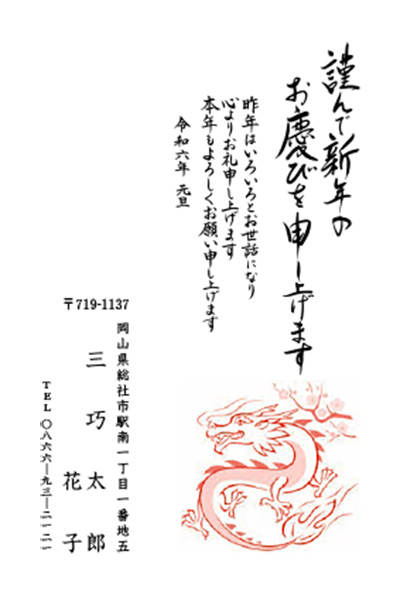 謹んで新年の
お慶びを申し上げます
昨年はいろいろとお世話になり
心よりお礼申し上げます
本年もよろしくお願い申し上げます
令和六年 元旦
〒719-1137
岡山県総社市駅南一丁目一番地五
三巧太郎
花子
TEL〇八六六―九三―二一二一